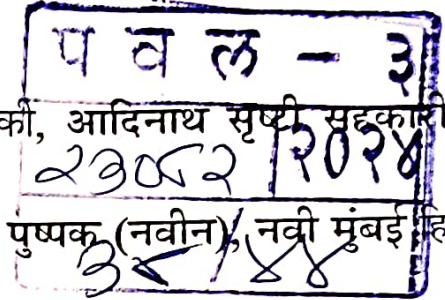 प व ल - ३
की, आदिनाथ सृष्टी सहकारी
२३०८२ | २०२४
पुष्पक (नवीन), नवी मुंबई हि
३८/४४